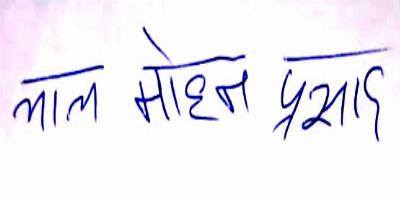 लाल मोहन प्रसाद